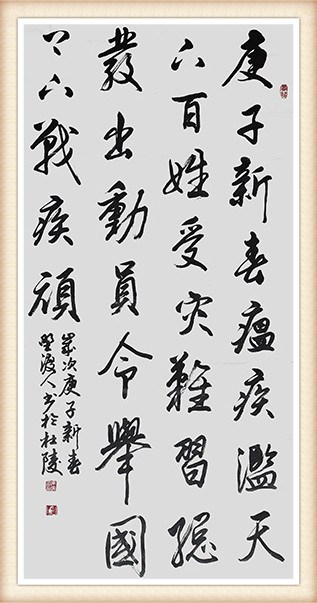 庚子新春瘟疾濫天
下百姓受灾難習總
發出動員令舉國
上下戰疾頑
歲次庚子新春
渡人书於杜陵